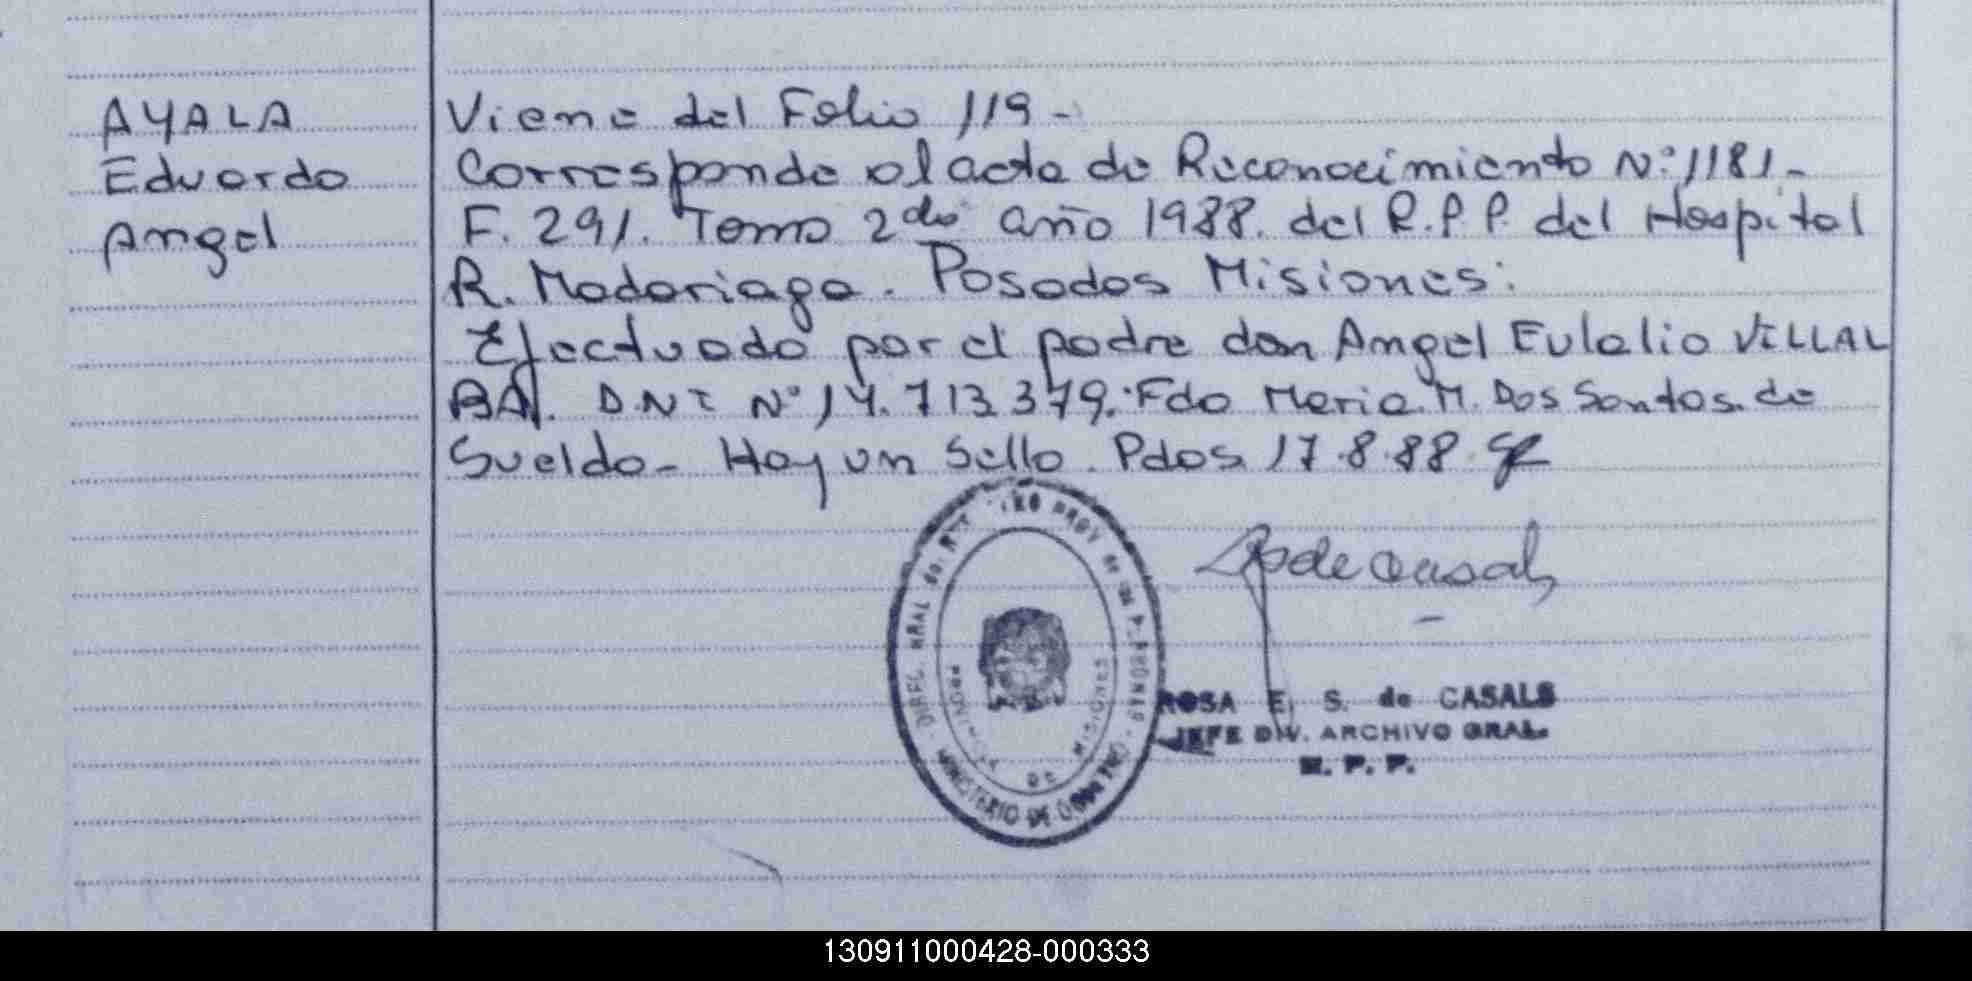 AYALA
Eduardo
Angel
Viene del Folio 119-
Corresponde al acta de Reconocimiento N° 1181.-
F. 291. Tomo 2do año 1988. del R.P.P. del Hospital
R. Madariaga. Posadas Misiones:
Efectuado por el padre don Angel Eulalio VILLAL
BA. DNI N° 14.713.379. Fdo Maria M. Dos Santos de
Sueldo- Hay un Sello. Pdas 17.8.88.
DIREC. GRAL del REGISTRO PROV de las PERSONAS - MINISTERIO DE GOBIERNO
PROVINCIA DE MISIONES
ROSA E. S. de CASALS
JEFE DIV. ARCHIVO GRAL.
R. P. P.
130911000428-000333